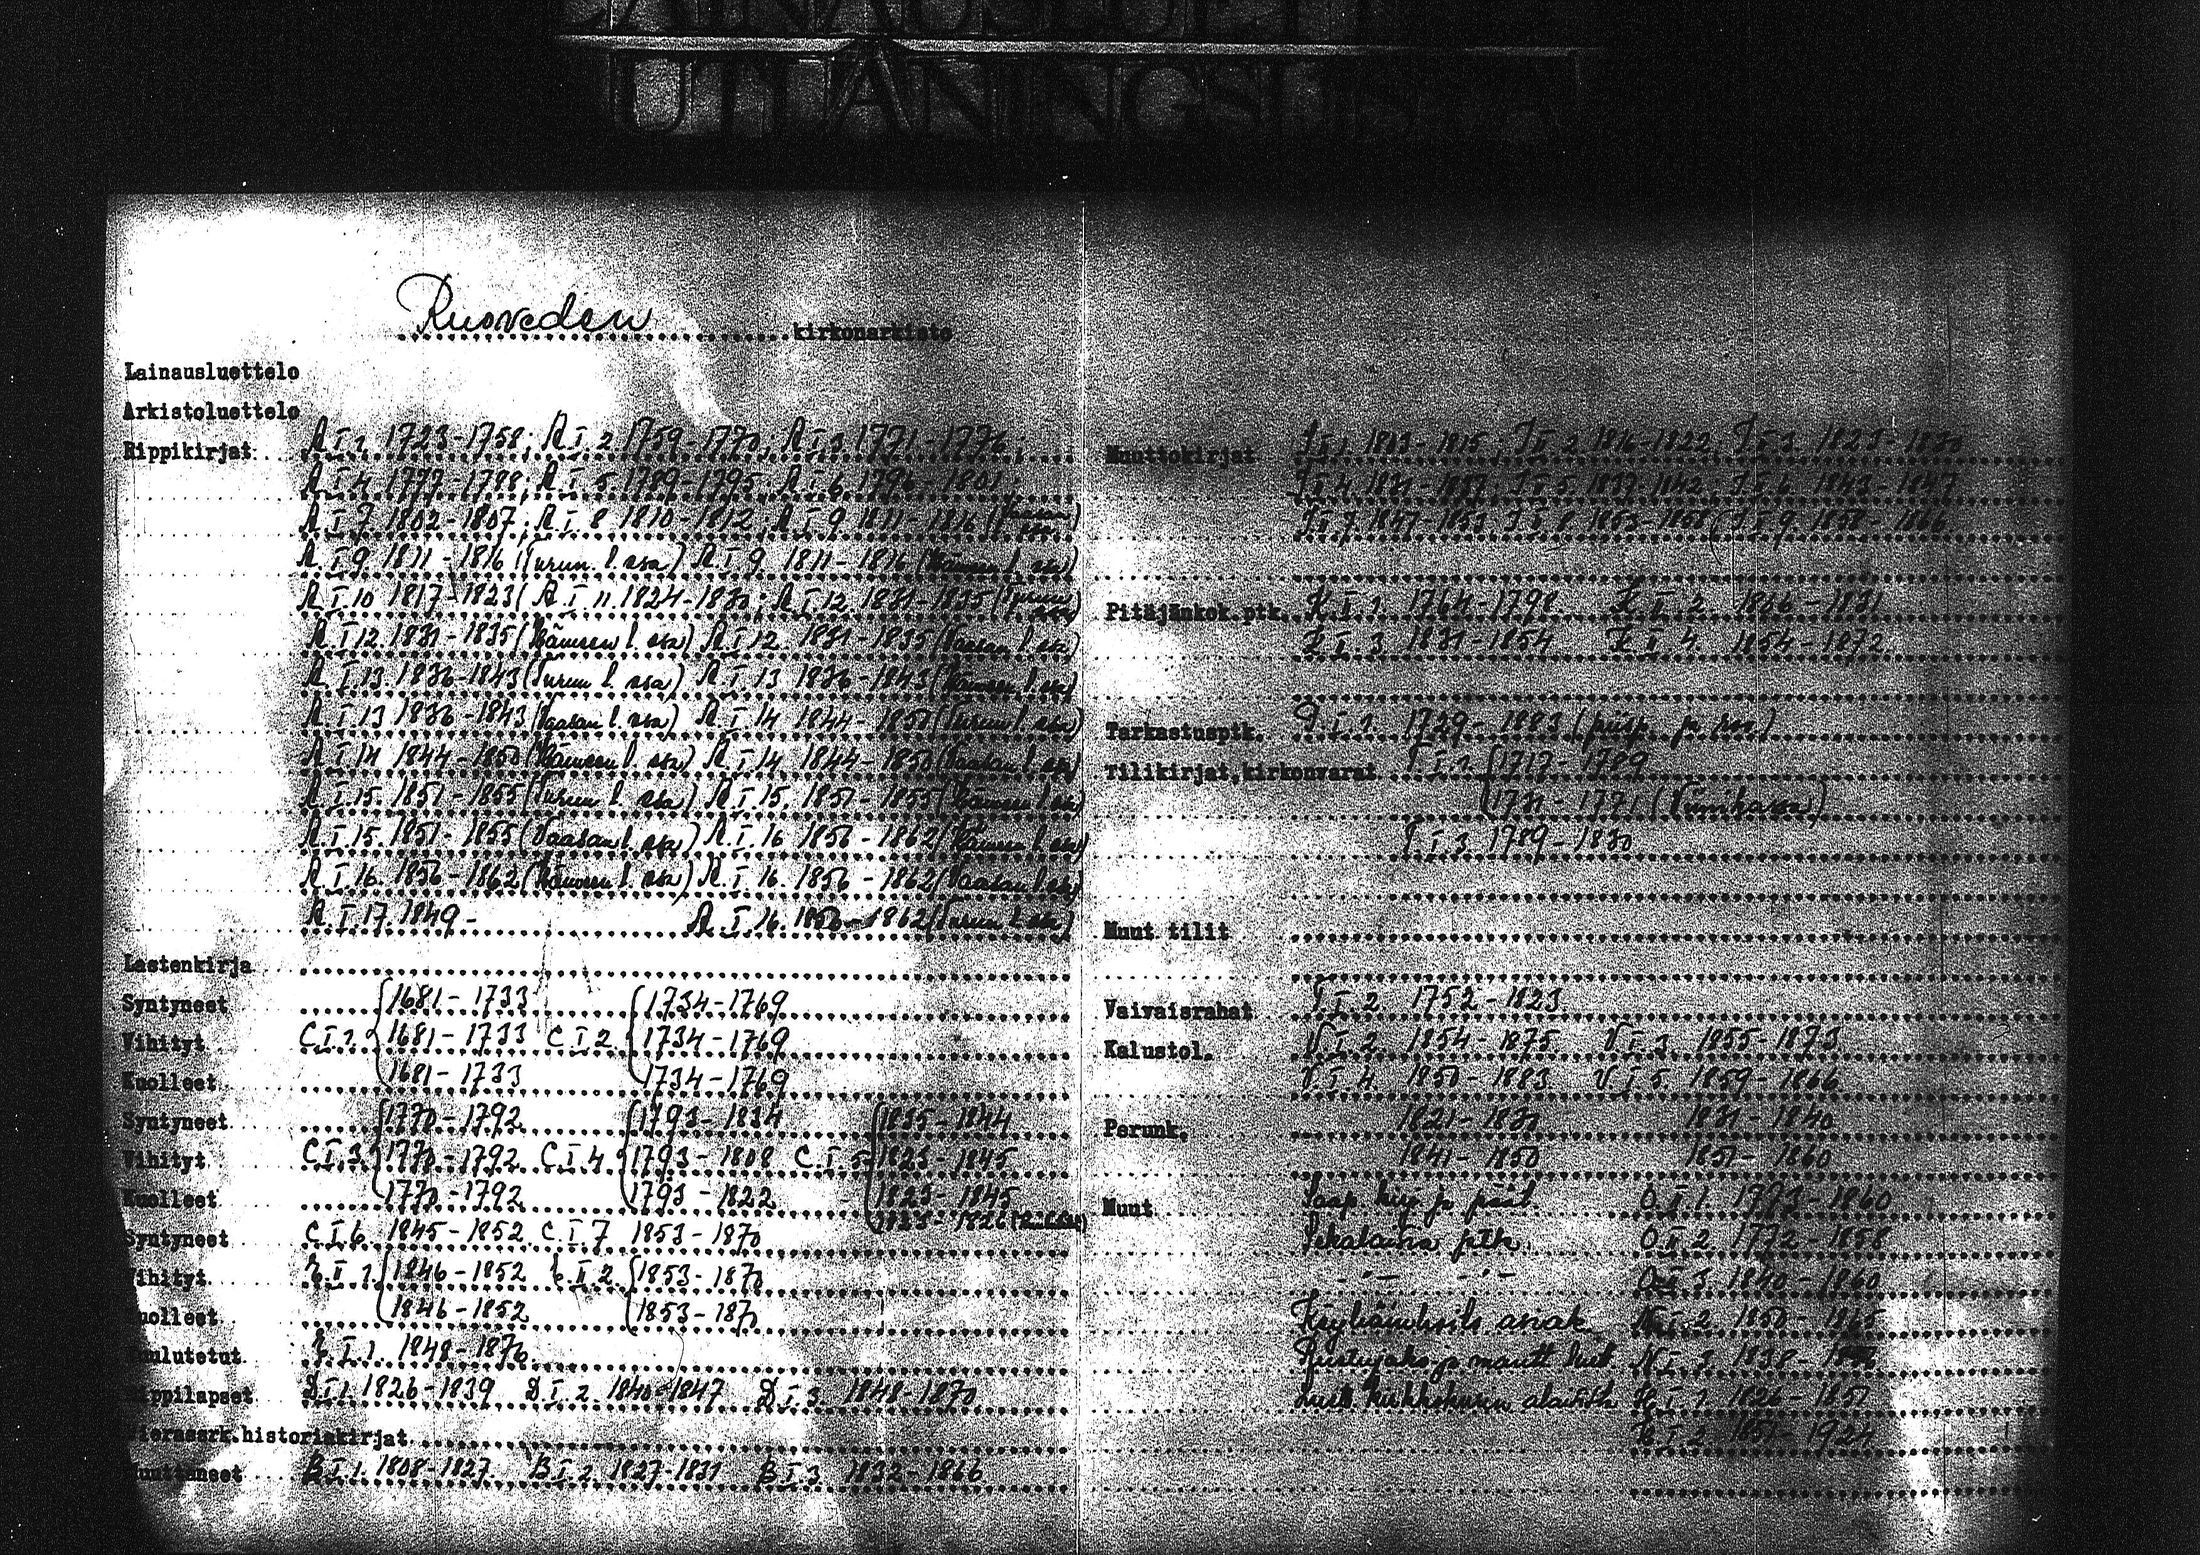 LAINAUSLUETT
UTLÅNINGSLISTA
Ruoveden kirkonarkisto
Lainausluettelo
Arkistoluettelo
Rippikirjat A I 1 1723-1758; A I 2 1759-1770; A I 3 1771-1776;
A I 4 1777-1788; A I 5 1789-1795; A I 6 1796-1801;
A I 7 1802-1807; A I 8 1810-1812; A I 9 1811-1816 (Vaasan osa)
A I 9 1811-1816 (Turun l. osa) A I 9 1811-1816 (Hämeen l. osa)
A I 10 1817-1823; A I 11 1824-1830; A I 12 1831-1835 (Turun osa)
A I 12 1831-1835 (Hämeen l. osa) A I 12 1831-1835 (Vaasan l. osa)
A I 13 1836-1843 (Turun l. osa) A I 13 1836-1843 (Hämeen l. osa)
A I 13 1836-1843 (Vaasan l. osa) A I 14 1844-1850 (Turun l. osa)
A I 14 1844-1850 (Hämeen l. osa) A I 14 1844-1850 (Vaasan l. osa)
A I 15 1851-1855 (Turun l. osa) A I 15 1851-1855 (Hämeen l osa)
A I 15 1851-1855 (Vaasan l. osa) A I 16 1856-1862 (Hämeen l osa)
A I 16 1856-1862 (Hämeen l. osa) A I 16 1856-1862 (Vaasan l osa)
A I 17 1849- A I 16 1856-1862 (Turun l osa)
Lastenkirja
Syntyneet 1681-1733 1734-1769
Vihityt C I 1 1681-1733 C I 2 1734-1769
Kuolleet 1681-1733 1734-1769
Syntyneet 1770-1792 1793-1834 1835-1844
Vihityt C I 3 1770-1792 C I 4 1793-1808 C I 5 1823-1845
Kuolleet 1770-1792 1793-1822 1823-1845
Syntyneet C I 6 1845-1852 C I 7 1853-1870
Vihityt E I 1 1846-1852 E II 2 1853-1870
Kuolleet 1846-1852 1853-1870
Kuulutetut 1848-1876
Rippilapset D I 1 1826-1839 D I 2 1840-1847 D I 3 1848-1870
Pieramerk.historiakirjat
Muuttaneet B I 1 1808-1827 B I 2 1827-1831 B I 3 1832-1866
Muuttokirjat J II 1 1803-1815; J II 2 1816-1822; J II 3 1823-1830
J II 4 1831-1837; J II 5 1837-1842; J II 6 1843-1847
J II 7 1847-1853; J II 8 1853-1858; J II 9 1858-1866
Pitäjänkok.ptk. K II 1 1764-1798 K II 2 1806-1831
K II 3 1831-1854 K II 4 1854-1872
Tarkastusptk. 1729-1883 (piisp. ja rov.)
Tilikirjat, kirkonvarat T I 1 1717-1789
1731-1771 (Viinikassa)
T I 3 1789-1830
Muut tilit
Vaivaisrahat T I 2 1752-1823
Kalustol. V I 2 1854-1875 V I 3 1855-1893
V I 4 1850-1883 V I 5 1859-1866
Perunk. 1821-1830 1831-1840
1841-1850 1851-1860
Muut Saap. kirj. ja päät. O II 1 1773-1860
Sekalaisia ptk. O II 2 1772-1858
O II 3 1840-1860
Köyhäinhoito asiak N I 2 1850-1865
N I 3 1838-
1826-1851
1851-1924